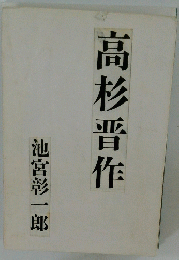 高杉晋作
池宮彰一郎